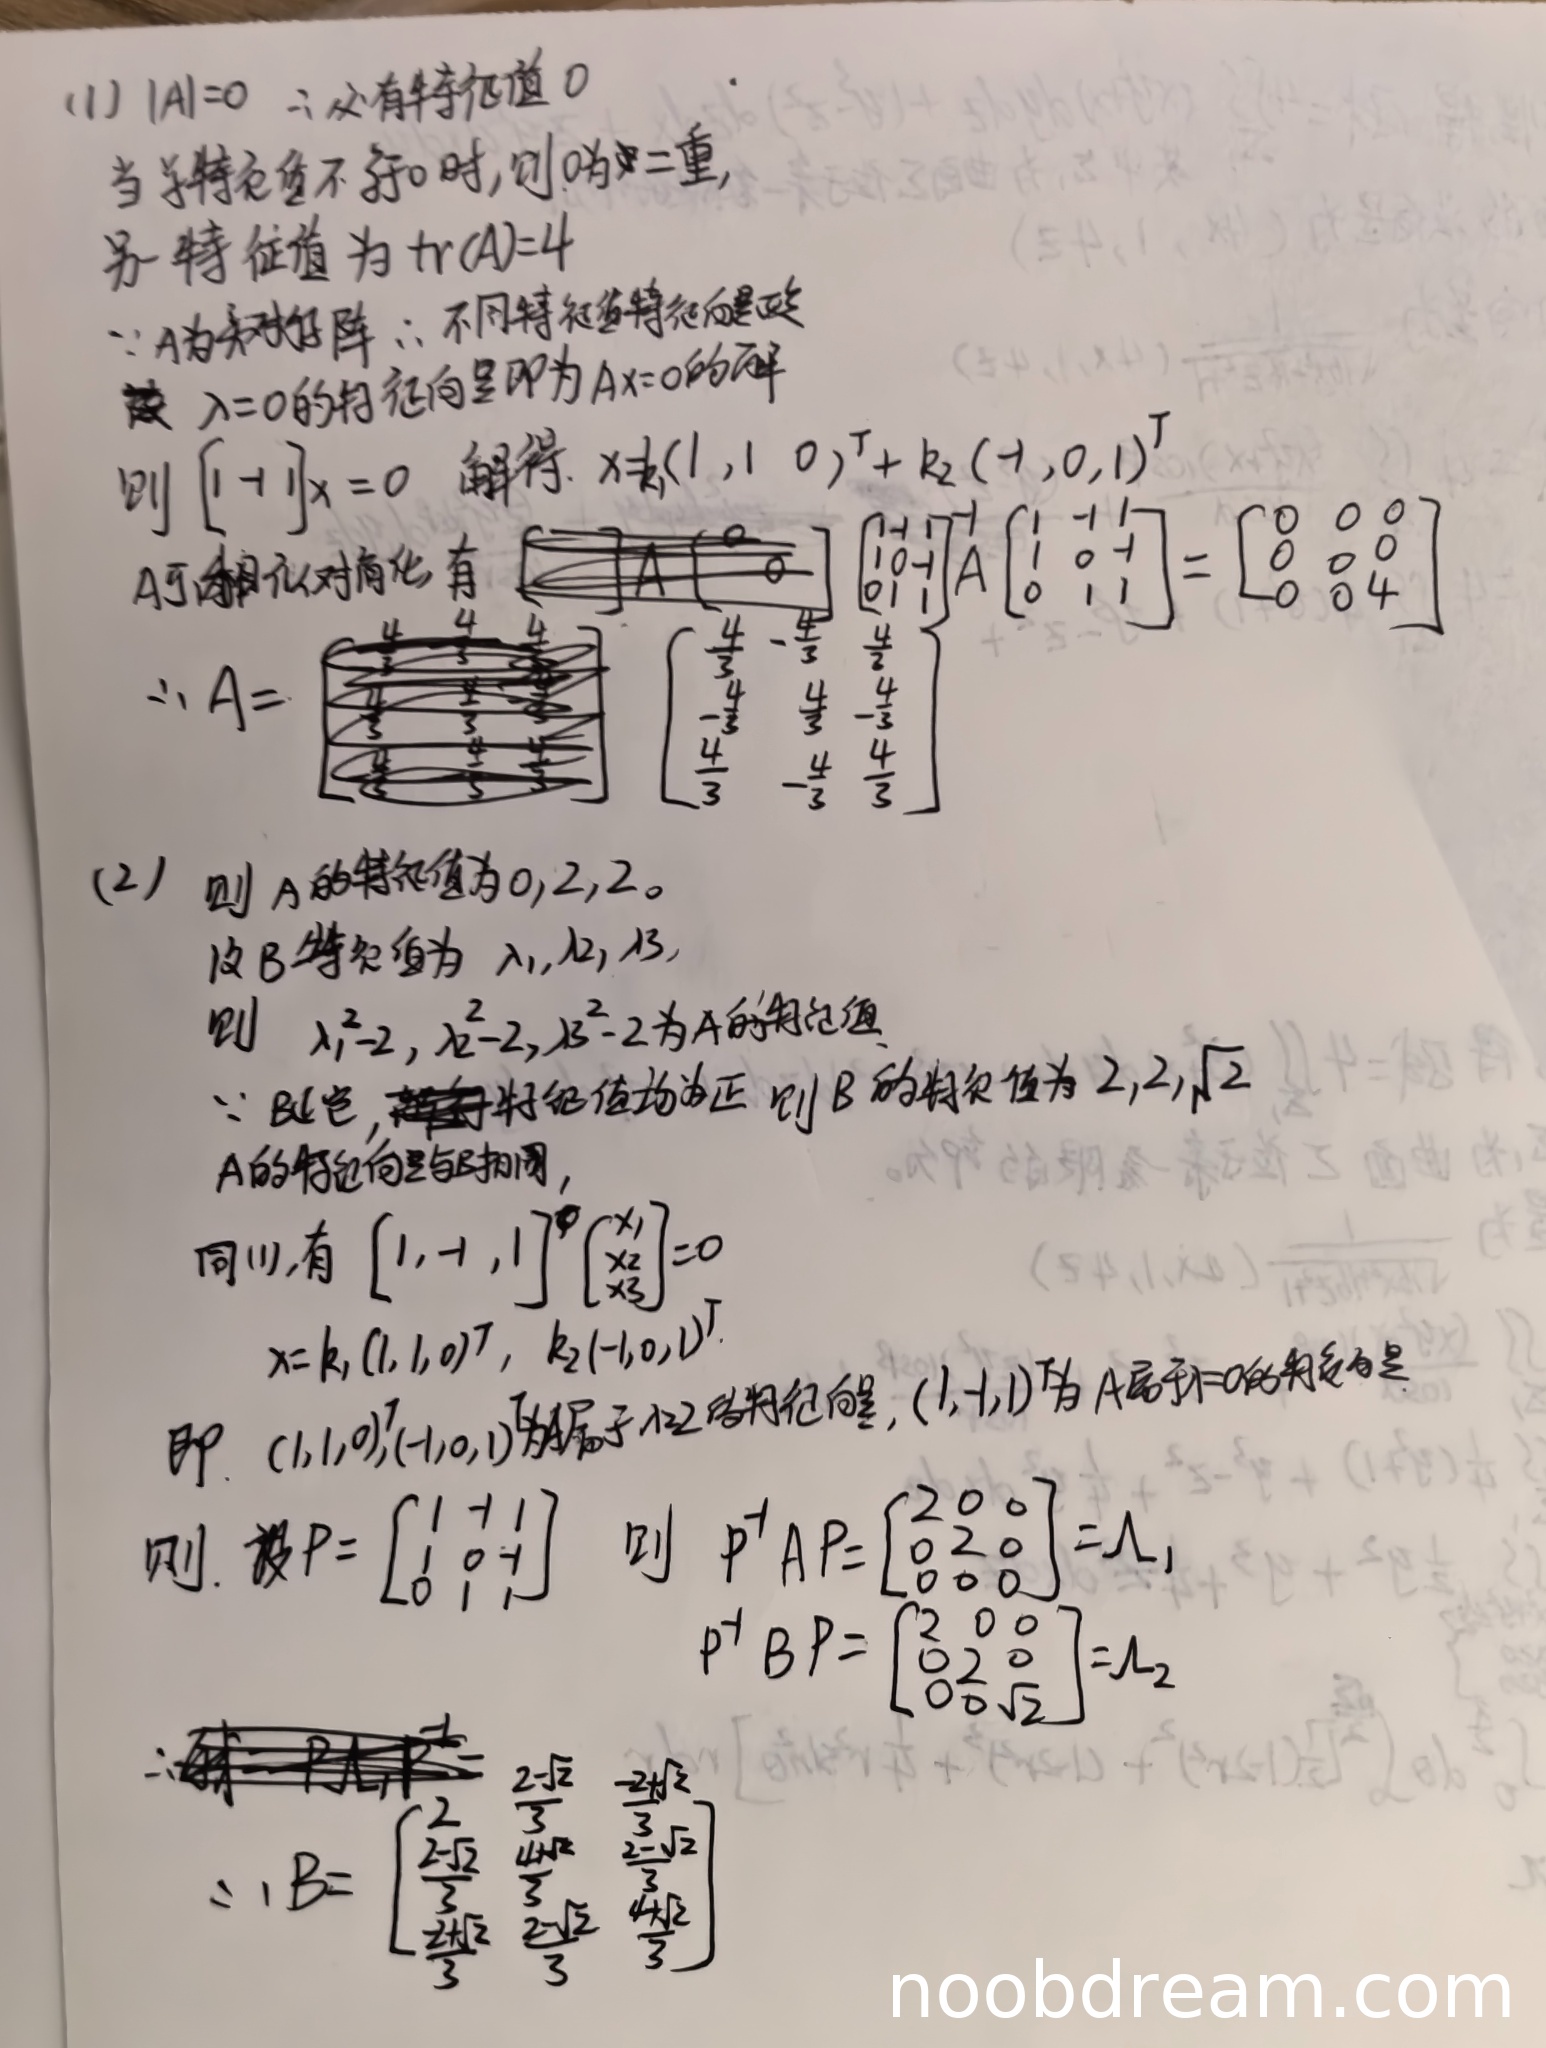 (1) |A|=0 ∴必有特征值0
当单特征值不等于0时,则0为二重,
另一特征值为 tr(A)=4
∵A为实对称阵 ∴不同特征值特征向量正交
λ=0的特征向量即为Ax=0的解
则 [1 -1 1]x=0 解得. x=k₁(1,1 0)ᵀ+k₂(-1,0,1)ᵀ
A可相似对角化,有 [1 -1 1; 1 0 -1; 0 1 1]⁻¹ A [1 -1 1; 1 0 -1; 0 1 1] = [0 0 0; 0 0 0; 0 0 4]
∴ A= [4/3 -4/3 4/3; -4/3 4/3 -4/3; 4/3 -4/3 4/3]
(2) 则A的特征值为0,2,2。
设B特征值为 λ1,λ2,λ3,
则 λ1²-2, λ2²-2, λ3²-2为A的特征值
∵B正定,特征值均为正 则B的特征值为 2,2,√2
A的特征向量与B相同,
同(1),有 [1,-1,1] [x1; x2; x3]=0
x=k₁(1,1,0)ᵀ, k₂(-1,0,1)ᵀ.
即. (1,1,0)ᵀ,(-1,0,1)ᵀ为A属于λ=2的特征向量, (1,-1,1)ᵀ为A属于λ=0的特征向量
则. 设P= [1 -1 1; 1 0 -1; 0 1 1] 则 P⁻¹AP= [2 0 0; 0 2 0; 0 0 0] =Λ₁
P⁻¹BP= [2 0 0; 0 2 0; 0 0 √2] =Λ₂
∴ B= [2 (2-√2)/3 (-2+√2)/3; (2-√2)/3 (4+√2)/3 (2-√2)/3; (-2+√2)/3 (2-√2)/3 (4+√2)/3]
noobdream.com